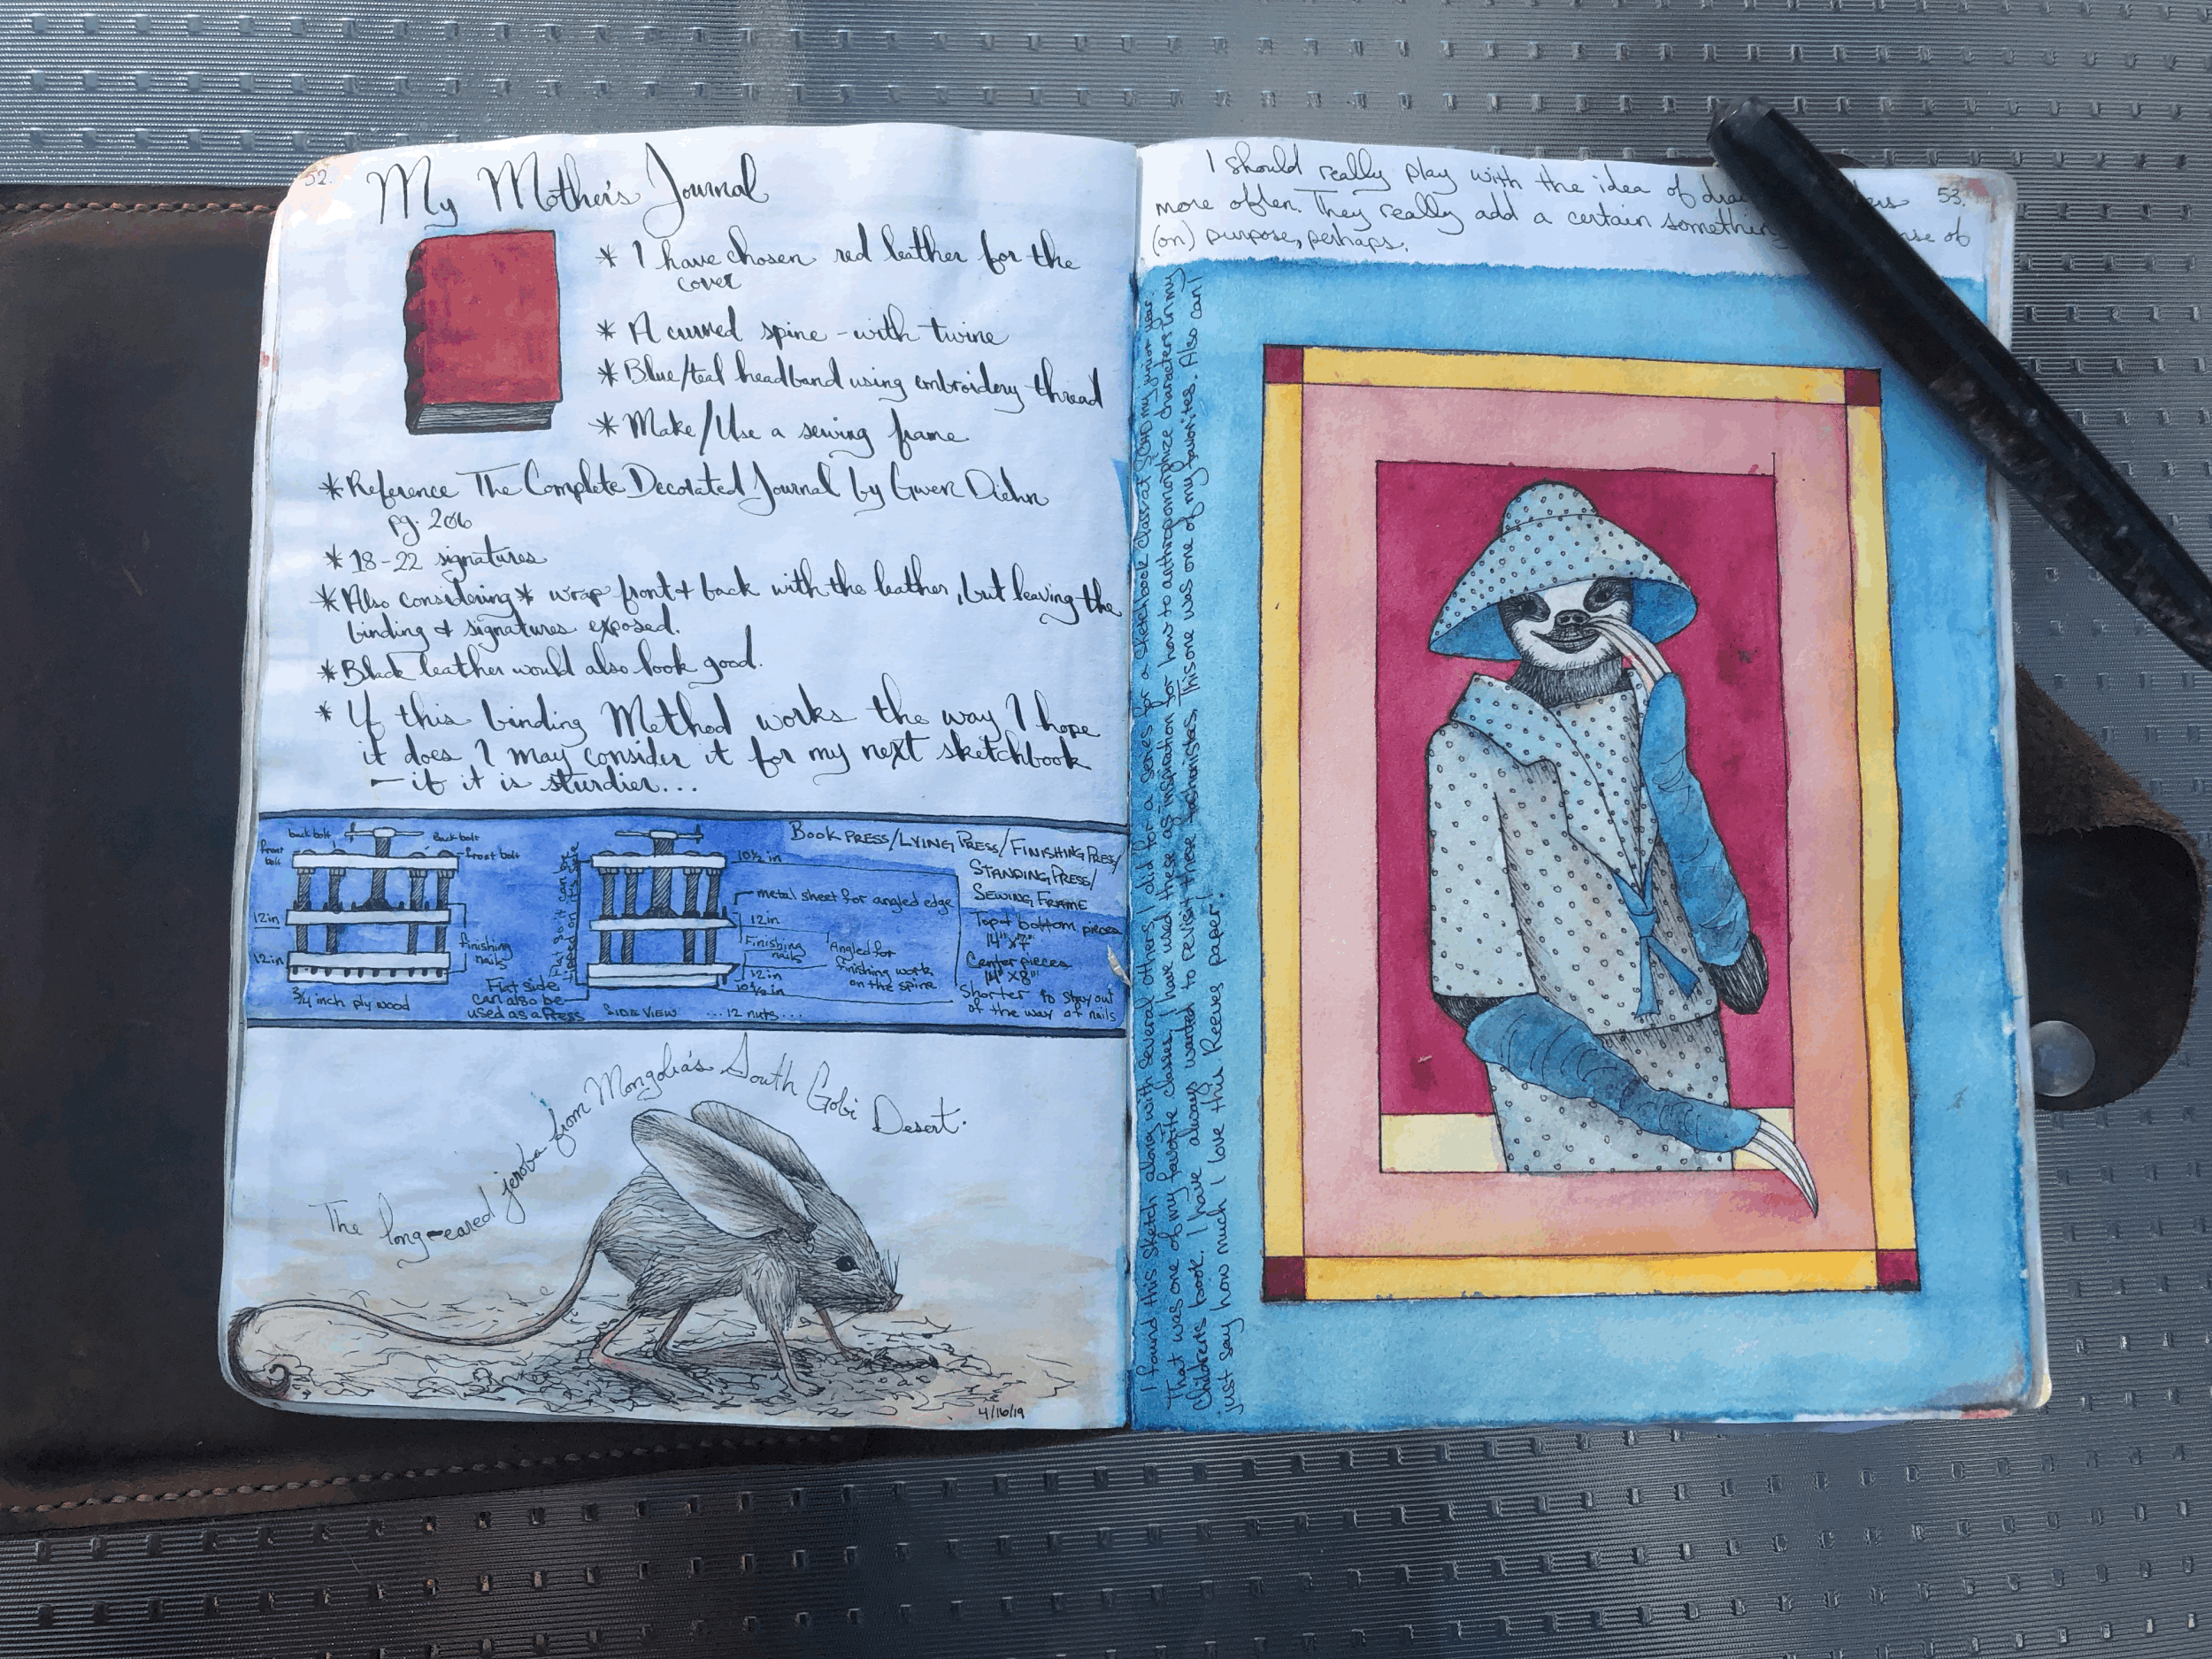 52.
My Mother's Journal
* I have chosen red leather for the
cover
* A curved spine - with twine
* Blue/teal headband using embroidery thread
* Make/Use a sewing frame
* Reference The Complete Decorated Journal by Gwen Diehn
pg. 206
* 18-22 signatures
* Also considering * wrap front + back with the leather, but leaving the
binding & signatures exposed.
* Black leather would also look good.
* If this binding Method works the way I hope
it does I may consider it for my next sketchbook
— if it is sturdier...
back bolt
Back bolt
front
bolt
front bolt
12in
12in
finishing
nails
3/4 inch ply wood
Flat side
can also be
used as a Press
Flat so it can be
tipped on its side
SIDE VIEW
...12 nuts...
10½ in
metal sheet for angled edge
12in
Finishing
nails
12in
10½ in
Angled for
finishing work
on the spine
BOOK PRESS/LYING PRESS/FINISHING PRESS/
STANDING PRESS/
SEWING FRAME
Top & bottom pieces
14"x7"
Center pieces
14"x8"
Shorter to stay out
of the way of nails
The long-eared jerboa from Mongolia's South Gobi Desert.
4/16/19
I should really play with the idea of
53.
more often. They really add a certain something of
(on) purpose, perhaps.
I found this sketch along with several others I did for a series for a sketchbook class at SCAD my junior year.
That was one of my favorite classes. I have used these as inspiration for how to anthropomorphize characters in my
Children's book. I have always wanted to revisit these fashionistas. This one was one of my favorites. Also can I
just say how much I love this Reeves paper!